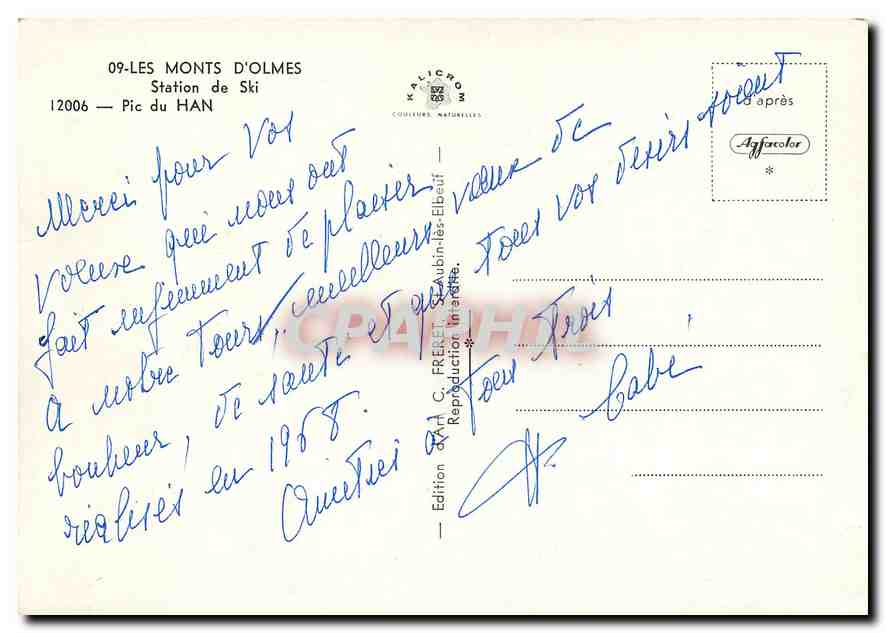 09-LES MONTS D'OLMES
Station de Ski
12006 — Pic du HAN
KALICROM
COULEURS NATURELLES
d'après
Agfacolor
*
Merci pour vos
voeux qui nous ont
fait infiniment de plaisir
A notre tour, meilleurs voeux de
bonheur, de santé et que tous vos désirs soient
réalisés en 1968.
Amitiés à tous trois
— Edition d'Art C. FRERET, St-Aubin-lès-Elbeuf —
Reproduction interdite.
*
CPARAMA